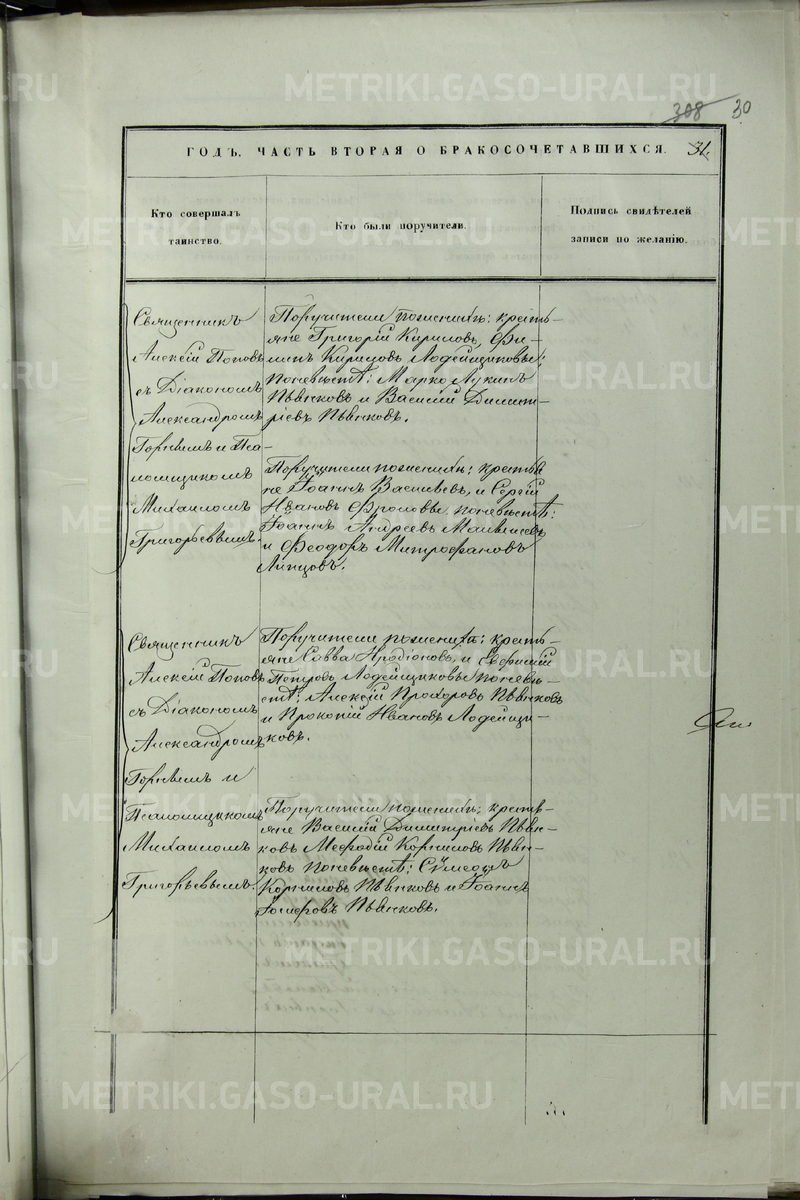 METRIKI.GASO-URAL.RU
308 30
ГОДЪ, ЧАСТЬ ВТОРАЯ О БРАКОСОЧЕТАВШИХСЯ. 31.
Кто совершалъ
таинство.
Кто были поручители.
Подпись свидѣтелей
записи по желанію.
Священникъ
Алексій Поповъ
съ Діакономъ
Александромъ
Горнымъ и Пса-
ломщикомъ
Михаиломъ
Григорьевымъ.
Поручители по женихѣ: кресть-
яне Григорій Кириловъ, Фи-
липъ Кириловъ Лодейщиковы;
по невѣстѣ: Марко Лукинъ
Пьянковъ и Василій Димит-
ріевъ Пьянковъ.
Поручители по женихѣ: крестья
не Іоаннъ Васильевъ, и Сергій
Ивановъ Фроловы по невѣстѣ:
Іоаннъ Андреевъ
и Феодоръ Митрофановъ
Липцовъ.
Священникъ
Алексій Поповъ
съ Діакономъ
Александромъ
Горнымъ и
Псаломщикомъ
Михаиломъ
Григорьевымъ.
Поручители по женихѣ: кресть-
яне Савва Иродіоновъ, и
Петровъ Лодейщиковы по невѣ-
стѣ: Алексій Прохоровъ Пьянковъ
и Прокопій Ивановъ Лодейщи-
ковъ.
Поручители по женихѣ: кресть-
яне Василій Димитріевъ Пьян-
ковъ Меѳодій Корниловъ Пьян-
ковъ по невѣстѣ: Сѵмеонъ
Корниловъ Пьянковъ и Іоаннъ
Пьянковъ.